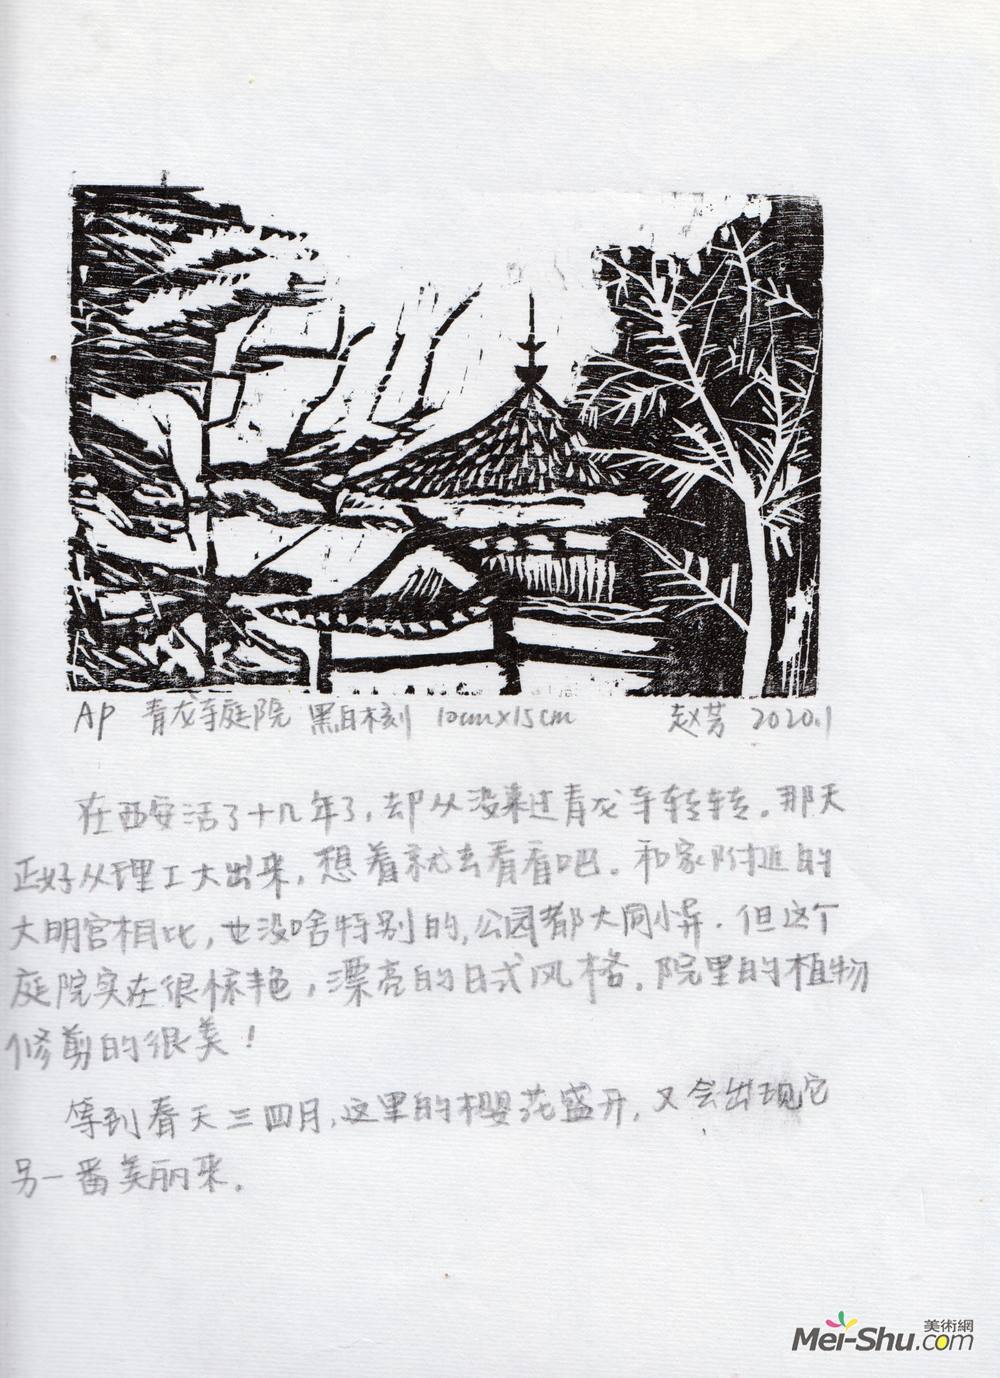 AP 青龙寺庭院 黑白木刻 10cm×15cm 赵芳 2020.1
在西安活了十几年了,却从没来过青龙寺转转。那天
正好从理工大出来,想着就去看看吧。和家附近的
大明宫相比,也没啥特别的,公园都大同小异.但这个
庭院实在很惊艳,漂亮的日式风格。院里的植物
修剪的很美!
等到春天三四月,这里的樱花盛开,又会出现它
另一番美丽来。
美術網
Mei-Shu.com